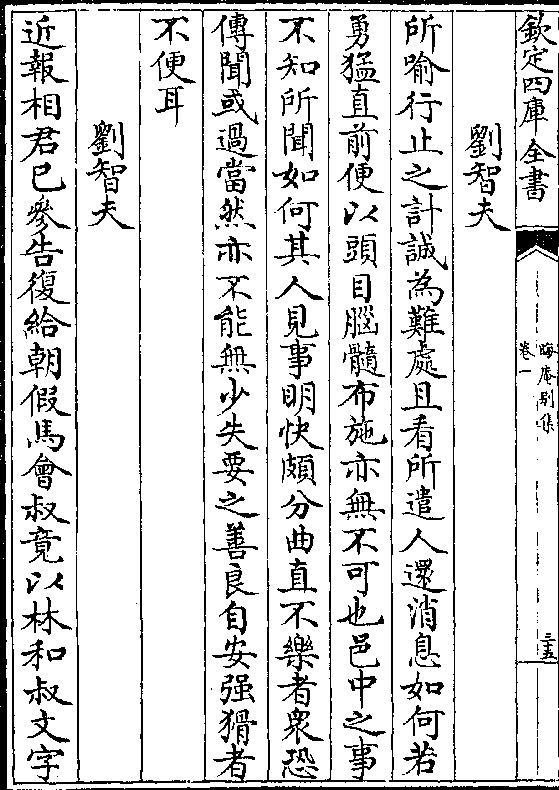 欽定四庫全書
晦庵別集
卷一
三五
劉智夫
所喻行止之計誠為難處且看所遣人還消息如何若
勇猛直前便以頭目腦髓布施亦無不可也邑中之事
不知所聞如何其人見事明快頗分曲直不樂者衆恐
傳聞或過當然亦不能無少失要之善良自安强猾者
不便耳
劉智夫
近報相君已參告復給朝假馬會叔竟以林和叔文字